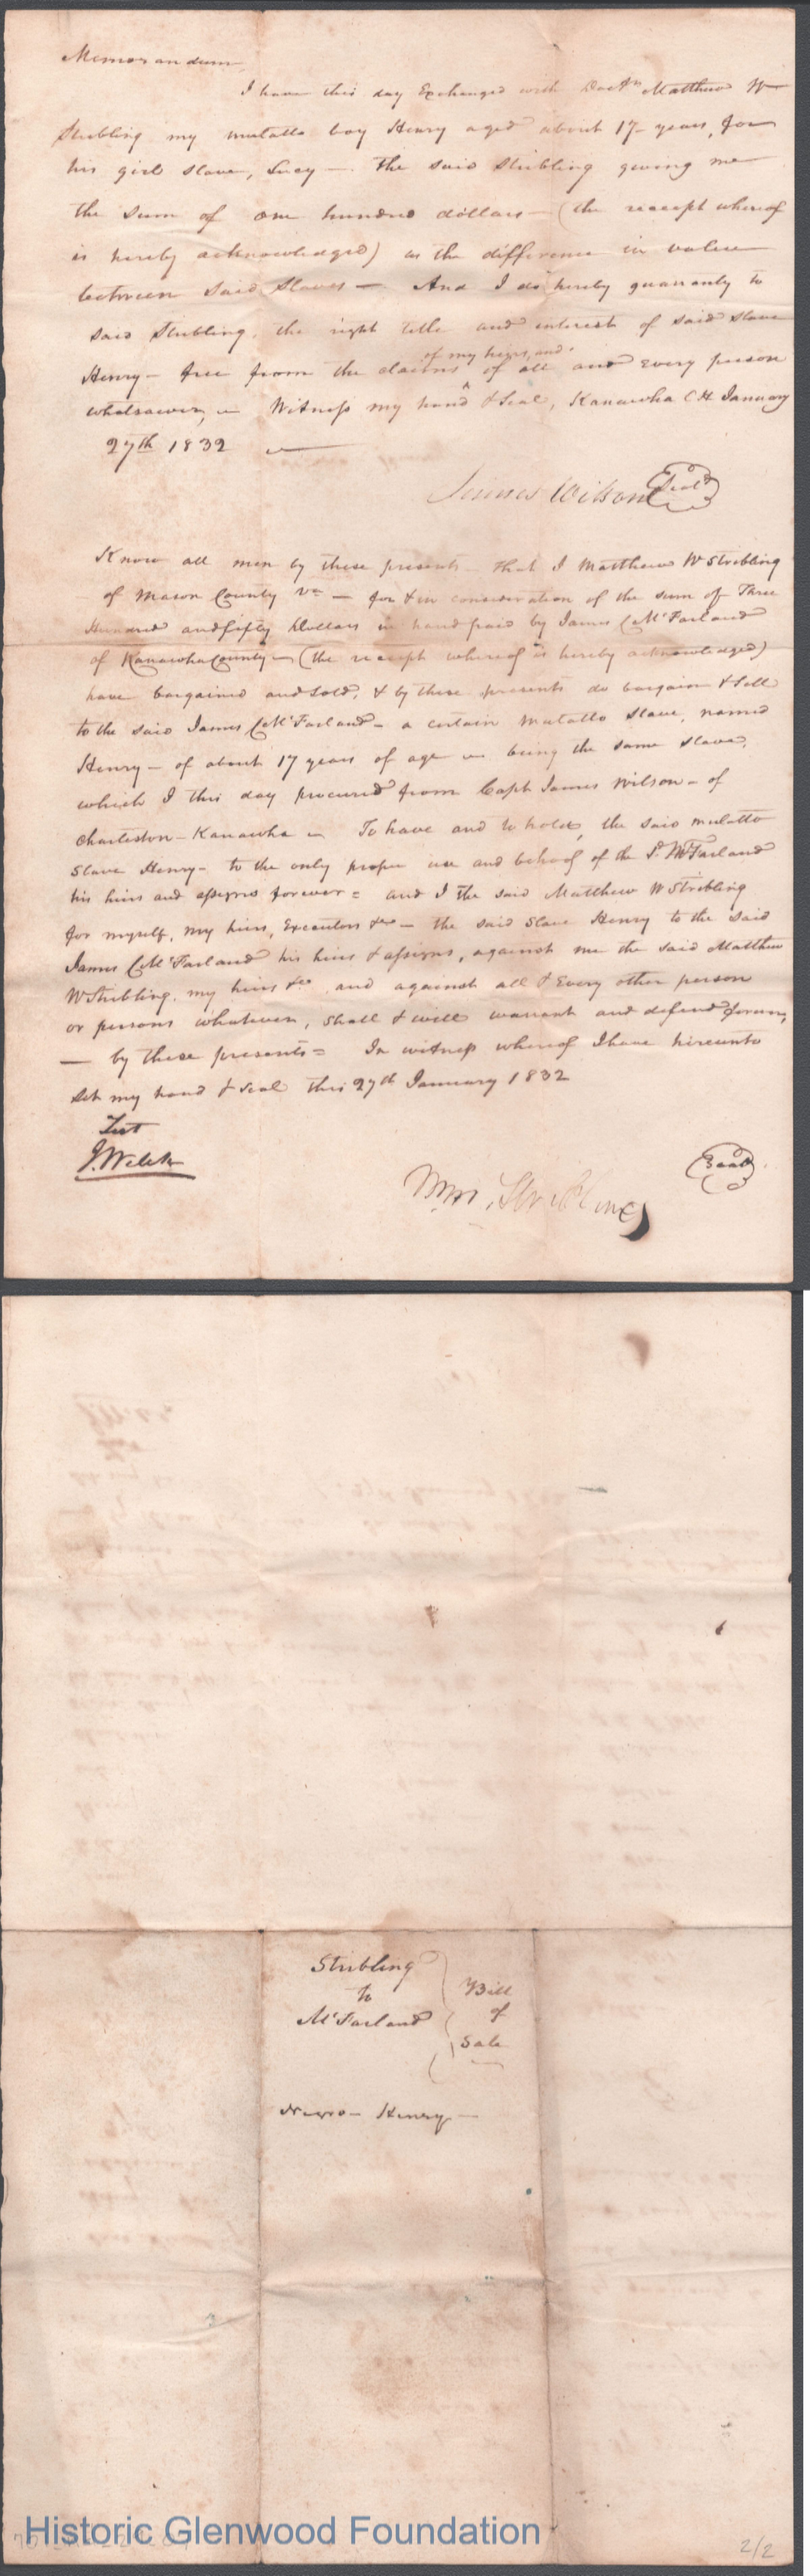 Memorandum
I have this day Exchanged with Doctr Matthew W
Stribling my mulatto boy Henry aged about 17 years, for
his girl slave, Lucy — The said Stribling giving me
the sum of one hundred dollars — (the receipt whereof
is hereby acknowledged) as the difference in value
between said slaves — And I do hereby guaranty to
said Stribling, the right title and interest of said slave
of my heirs, and
Henry — free from the claims ^ of all and every person
whatsoever, — Witness my hand & Seal, Kanawha C H January
27th 1832 —
James Wilson Seal
Know all men by these presents — that I Matthew W Stribling
of Mason County Va — for & in consideration of the sum of Three
Hundred and fifty Dollars in hand paid by James C McFarland
of Kanawha County — (the receipt whereof is hereby acknowledged)
have bargained and sold, & by these presents do bargain & sell
to the said James C McFarland — a certain mulatto slave, named
Henry — of about 17 years of age — being the same slave,
which I this day procured from Capt James Wilson — of
Charleston — Kanawha — To have and to hold, the said mulatto
slave Henry — to the only proper use and behoof of the Sd McFarland
his heirs and assigns forever = and I the said Matthew W Stribling
for myself, my heirs, Executors &c — the said slave Henry to the said
James C McFarland his heirs & assigns, against me the said Matthew
W Stribling, my heirs &c and against all & Every other person
or persons whatever, shall & will warrant and defend forever,
— by these presents = In witness whereof I have hereunto
set my hand & seal this 27th January 1832
Test
J. Welch
Seal
MW. Stribling
Stribling
to
McFarland
Bill
of
Sale
Negro — Henry —
Historic Glenwood Foundation
2/2